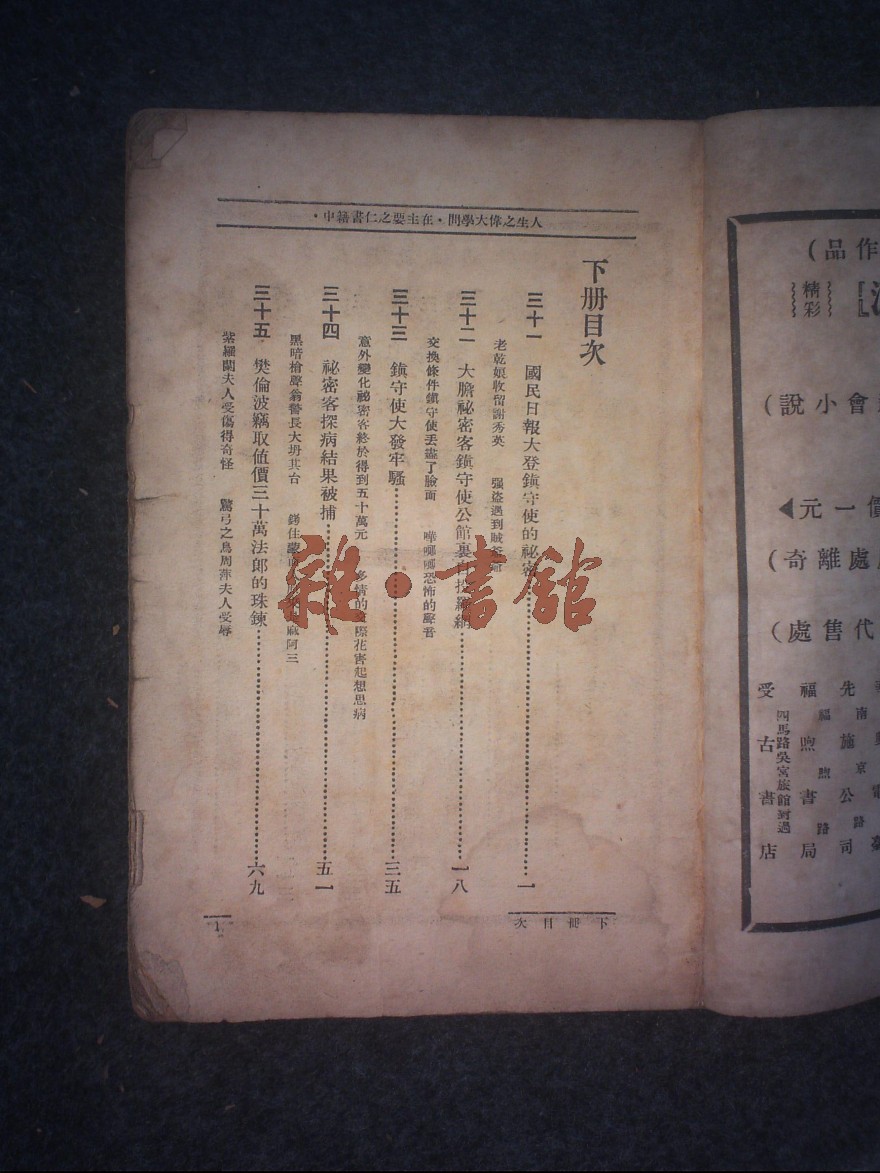 人生之偉大學問・在主要之仁書籍中・
下册目次
三十一 國民日報大登鎮守使的祕密…………一
老乾娘收留謝秀英 强盜遇到賊爺爺
三十二 大膽祕密客鎮守使公館裏自投羅網…………一八
交換條件鎮守使丟盡了臉面 嘩啷啷恐怖的聲音
三十三 鎮守使大發牢騷…………三五
意外變化祕密客終於得到五十萬元 多情的交際花害起想思病
三十四 祕密客探病結果被捕…………五一
黑暗槍聲翁警長大坍其台
三十五 樊倫波竊取値價三十萬法郎的珠鍊…………六九
紫羅蘭夫人受傷得奇怪 驚弓之鳥周萍夫人受辱
下冊目次
1
雜・書館
作品)
精彩
會小說)
價一元◀
處離奇)
代售處)
先施公司
福煦路
福煦書局
四馬路吳宮旅館對過
受古書店